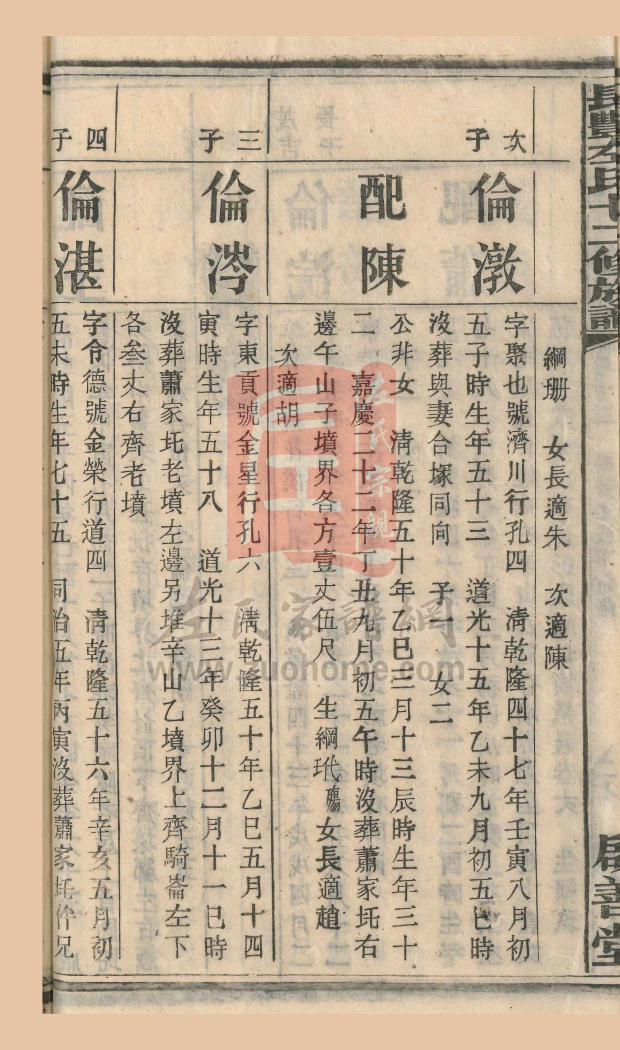 長豐左氏十二修族譜
啟善堂
綱珊 女長適朱 次適陳
次子
倫潡
字聚也號濟川行孔四 清乾隆四十七年壬寅八月初
五子時生年五十三 道光十五年乙未九月初五巳時
沒葬與妻合塚同向 子一 女二
配陳
公非女 清乾隆五十年乙巳三月十三辰時生年三十
二 嘉慶二十二年丁丑九月初五午時沒葬蕭家坵右
邊午山子墳界各方壹丈伍尺 生綱玳殤女長適趙
次適胡
三子
倫涔
字東貢號金星行孔六 淸乾隆五十年乙巳五月十四
寅時生年五十八 道光十三年癸卯十二月十一巳時
沒葬蕭家坵老墳左邊另堆辛山乙墳界上齊騎崙左下
各叄丈右齊老墳
四子
倫湛
字令德號金榮行道四 清乾隆五十六年辛亥五月初
五未時生年七十五 同治五年丙寅沒葬蕭家坵仵兄
左氏宗親
左氏家譜網
www.zuohome.com